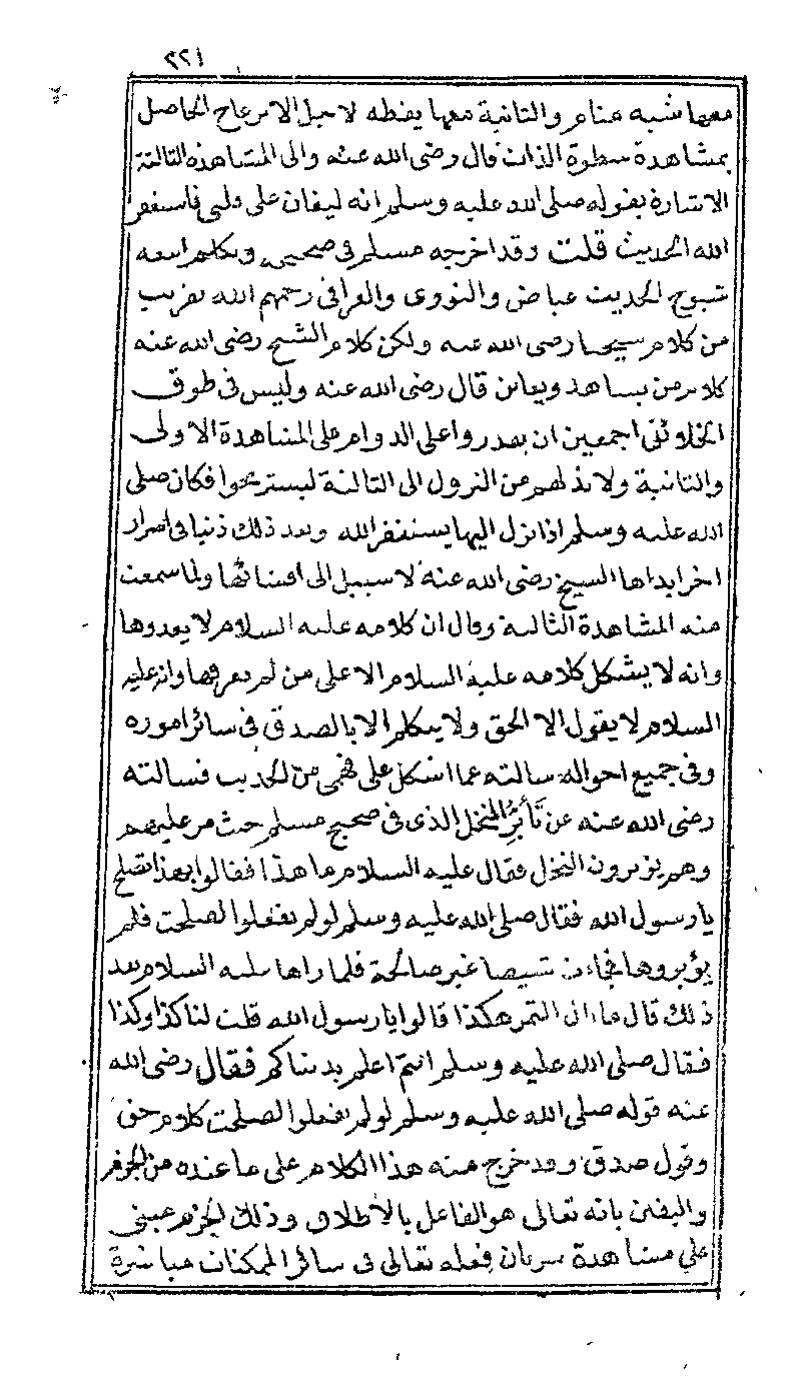 ٢٢١
معها شبه منام والثانية معها يقظه لاجل الانزعاج الحاصل
بمشاهدة سطوة الذات قال رضى الله عنه والى المشاهده الثالثة
الاشارة بقوله صلى الله عليه وسلم انه ليغان على قلبى فاستغفر
الله الحديث قلت وقد اخرجه مسلم فى صحيحه وكلام
شيوخ الحديث عياض والنووى والعراقى رحمهم الله بقريب
من كلام شيخنا رضى الله عنه ولكن كلام الشيخ رضى الله عنه
كلام من يشاهد ويعاين قال رضى الله عنه وليس فى طوق
الخلائق اجمعين ان يقدروا على الدوام على المشاهدة الاولى
والثانية ولابد لهم من النزول الى الثالثة ليستريحوا فكان صلى
الله عليه وسلم اذا نزل اليها يستغفر الله وبعد ذلك ذنبا فى اسرار
اخر ابداها الشيخ رضى الله عنه لا سبيل الى افشائها ولما سمعت
منه المشاهدة الثالثة وقال ان كلامه عليه السلام لا يعدوها
وانه لا يشكل كلامه عليه السلام الا على من لم يعرفها وانه عليه
السلام لا يقول الا الحق ولا يتكلم الا بالصدق فى سائر اموره
وفى جميع احواله سالته عما اشكل على فهمى من الحديث فسالته
رضى الله عنه عن تأبير النخل الذى فى صحيح مسلم حيث مر عليهم
وهم يؤبرون النخل فقال عليه السلام ما هذا فقالوا بهذا تصلح
يا رسول الله فقال صلى الله عليه وسلم لو لم تفعلوا لصلحت فلم
يؤبروها فجاءت شيصا غير صالحة فلما راها عليه السلام بعد
ذلك قال ما بال التمر هكذا قالوا يا رسول الله قلت لنا كذا وكذا
فقال صلى الله عليه وسلم انتم اعلم بدنياكم فقال رضى الله
عنه قوله صلى الله عليه وسلم لو لم تفعلوا لصلحت كلام حق
وقول صدق وقد خرج منه هذا الكلام على ما عنده من الجزم
واليقين بانه تعالى هو الفاعل بالاطلاق وذلك الجزم مبنى
على مشاهدة سريان فعله تعالى فى سائر الممكنات مباشرة